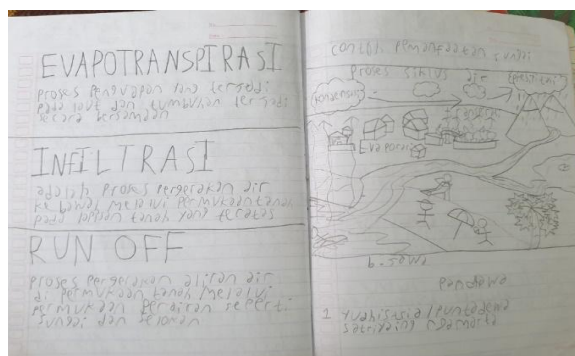 EVAPOTRANSPIRASI
proses penguapan yang terjadi
pada laut dan tumbuhan terjadi
secara bersamaan
INFILTRASI
adalah proses pergerakan air
ke bawah melalui permukaan tanah
pada lapisan tanah yang teratas
RUN OFF
proses pergerakan aliran air
di permukaan tanah melalui
permukaan perairan seperti
sungai dan selokan
contoh pemanfaatan sungai
proses siklus air
kondensasi
Evaporasi
b. Jawa
Pandawa
1 Yudhistira / puntadewa